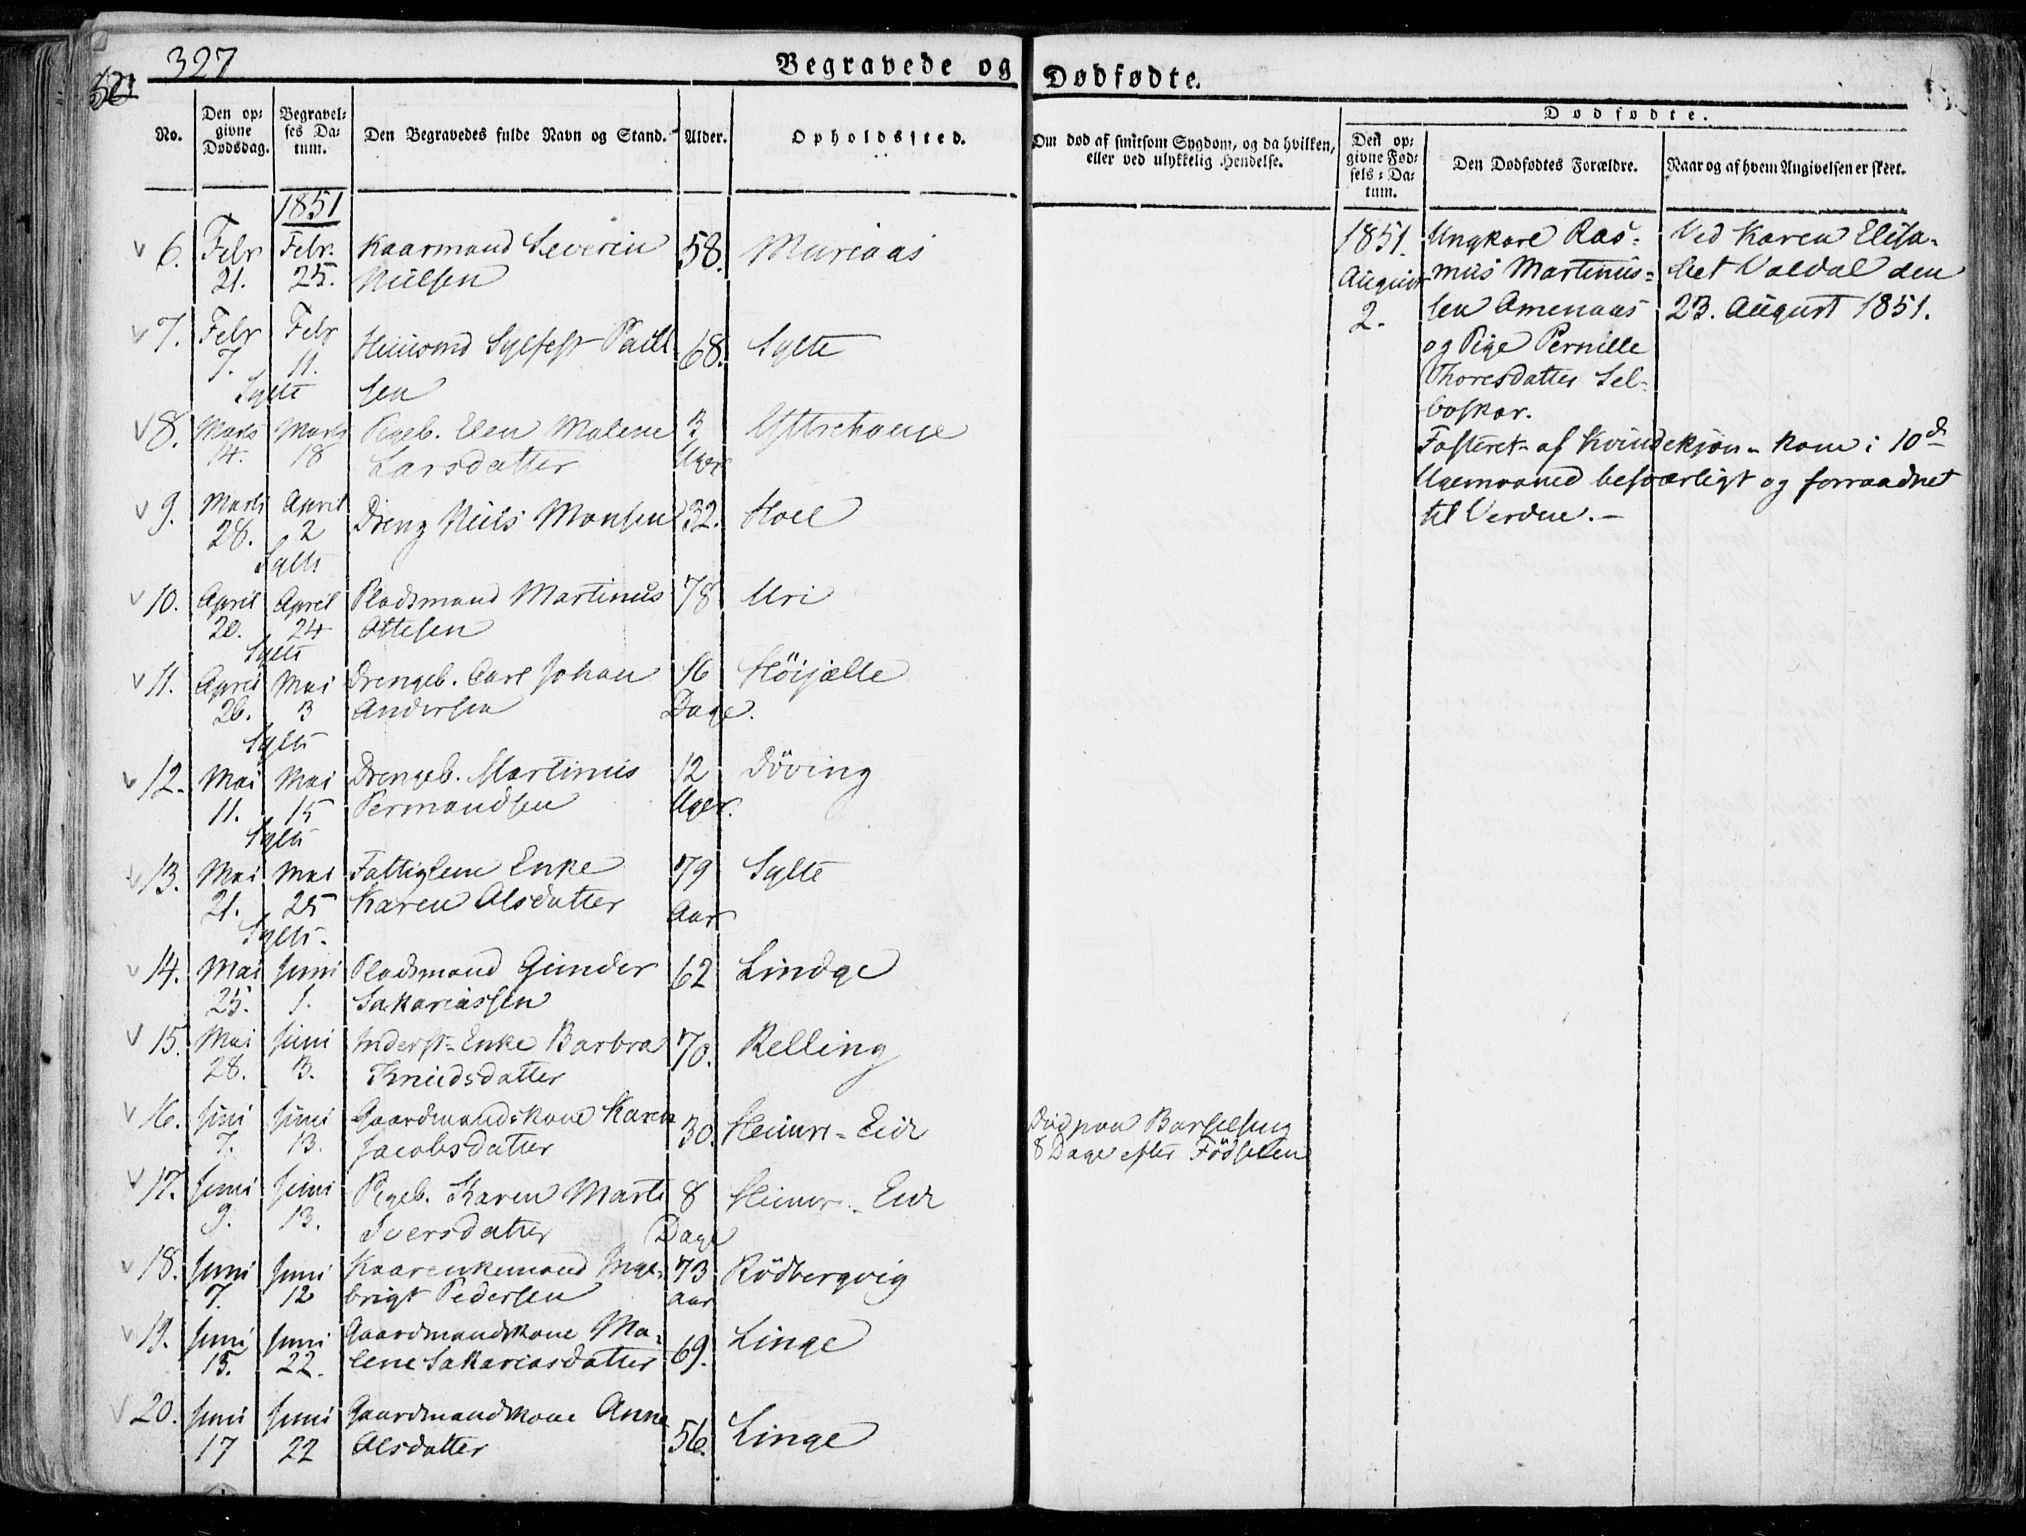 327
Begravede og Dødfødte.
No.
Den op-
givne
Dødsdag.
Begravel-
ses Da-
tum.
Den Begravedes fulde Navn og Stand.
Alder.
Opholdssted.
Om død af smitsom Sygdom, og da hvilken,
eller ved ulykkelig Hendelse.
Dødfødte.
Den op-
givne Fød-
sels-Da-
tum.
Den Dødfødtes Forældre.
Naar og af hvem Angivelsen er skeet.
1851
6. Febr Febr. Kaarmand Severin 58. Muriaas
21. 25. Nielsen
7. Febr Febr Huusmd Sylfest Paul 68. Sylte
7. 11. sen
Sylte
8. Marts Marts Pigeb. Elen Malene 3
14. 18 Larsdatter Uger
9. Marts April Dreng Niels Monsen 32. Hoel
28. 2
Sylte
10. April April Pladsmand Martinus 78 Uri
20. 24 Ottesen
Sylte
11. April Mai Drengeb. Carl Johan 16 Höijælle
26. 3 Andersen Dage.
Sylte
12. Mai Mai Drengeb. Martinus 12 Döving
11. 15 Permandsen Uger.
Sylte
13. Mai Mai Fattiglem Enke 79 Sylte
21. 25 Karen Olsdatter Aar
Sylte.
14. Mai Juni Pladsmand Gunder 62 Lindge
25. 1. Sakariassen
15. Mai Juni Inderst-Enke Barbra 70. Relling
28. 3. Knudsdatter
16. Juni Juni Gaardmandskone Karen 30. Heimre-Eide
7. 13. Jacobsdatter
Död paa Barselseng
8 Dage efter Födselen
17. Juni Juni Pigeb. Karen Marte 8 Heimre-Eide
9. 13. Iversdatter Dage
18. Juni Juni Kaarenkemand Inge- 73 Rödbergvig
7. 12 brigt Pedersen aar
19. Juni Juni Gaardmandskone Ma- 69. Linge
15. 22. lene Sakariasdatter
20. Juni Juni Gaardmandskone Anne 56. Linge
17 22 Olsdatter
1851. Ungkarl Ras- Ved Karen Elisa-
August mus Martinus- bet Valdal den
2. sen Amenaas 23. August 1851.
og Pige Pernille
Thoresdatter Sel-
boskar.
Fosteret af Kvindekjøn - kom i 10de
Ugemaaned besværligt og forraadnet
til Verden.-